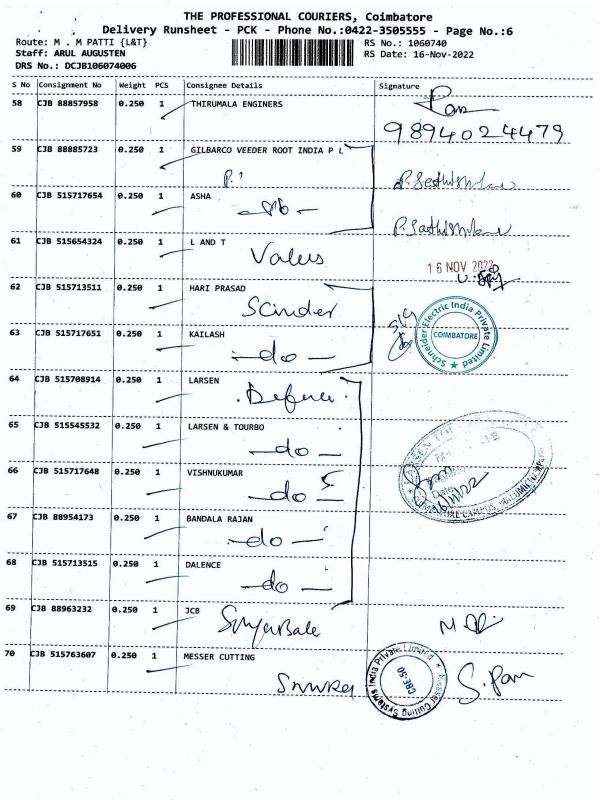 THE PROFESSIONAL COURIERS, Coimbatore
Delivery Runsheet - PCK - Phone No.:0422-3505555 - Page No.:6
Route: M . M PATTI {L&T}
RS No.: 1060740
Staff: ARUL AUGUSTEN
RS Date: 16-Nov-2022
DRS No.: DCJB106074006
S No Consignment No Weight PCS Consignee Details Signature
58 CJB 88857958 0.250 1 THIRUMALA ENGINERS
9894024479
59 CJB 88885723 0.250 1 GILBARCO VEEDER ROOT INDIA P L
60 CJB 515717654 0.250 1 ASHA
61 CJB 515654324 0.250 1 L AND T
Valves
16 NOV 2022
62 CJB 515713511 0.250 1 HARI PRASAD
Scinder
Schneider Electric India Private Limited
COIMBATORE
63 CJB 515717651 0.250 1 KAILASH
- do -
64 CJB 515708914 0.250 1 LARSEN
65 CJB 515545532 0.250 1 LARSEN & TOURBO
- do -
66 CJB 515717648 0.250 1 VISHNUKUMAR
- do -
67 CJB 88954173 0.250 1 BANDALA RAJAN
- do -
68 CJB 515713515 0.250 1 DALENCE
- do -
69 CJB 88963232 0.250 1 JCB
70 CJB 515763607 0.250 1 MESSER CUTTING
Messer Cutting Systems India Private Limited
CBE-50